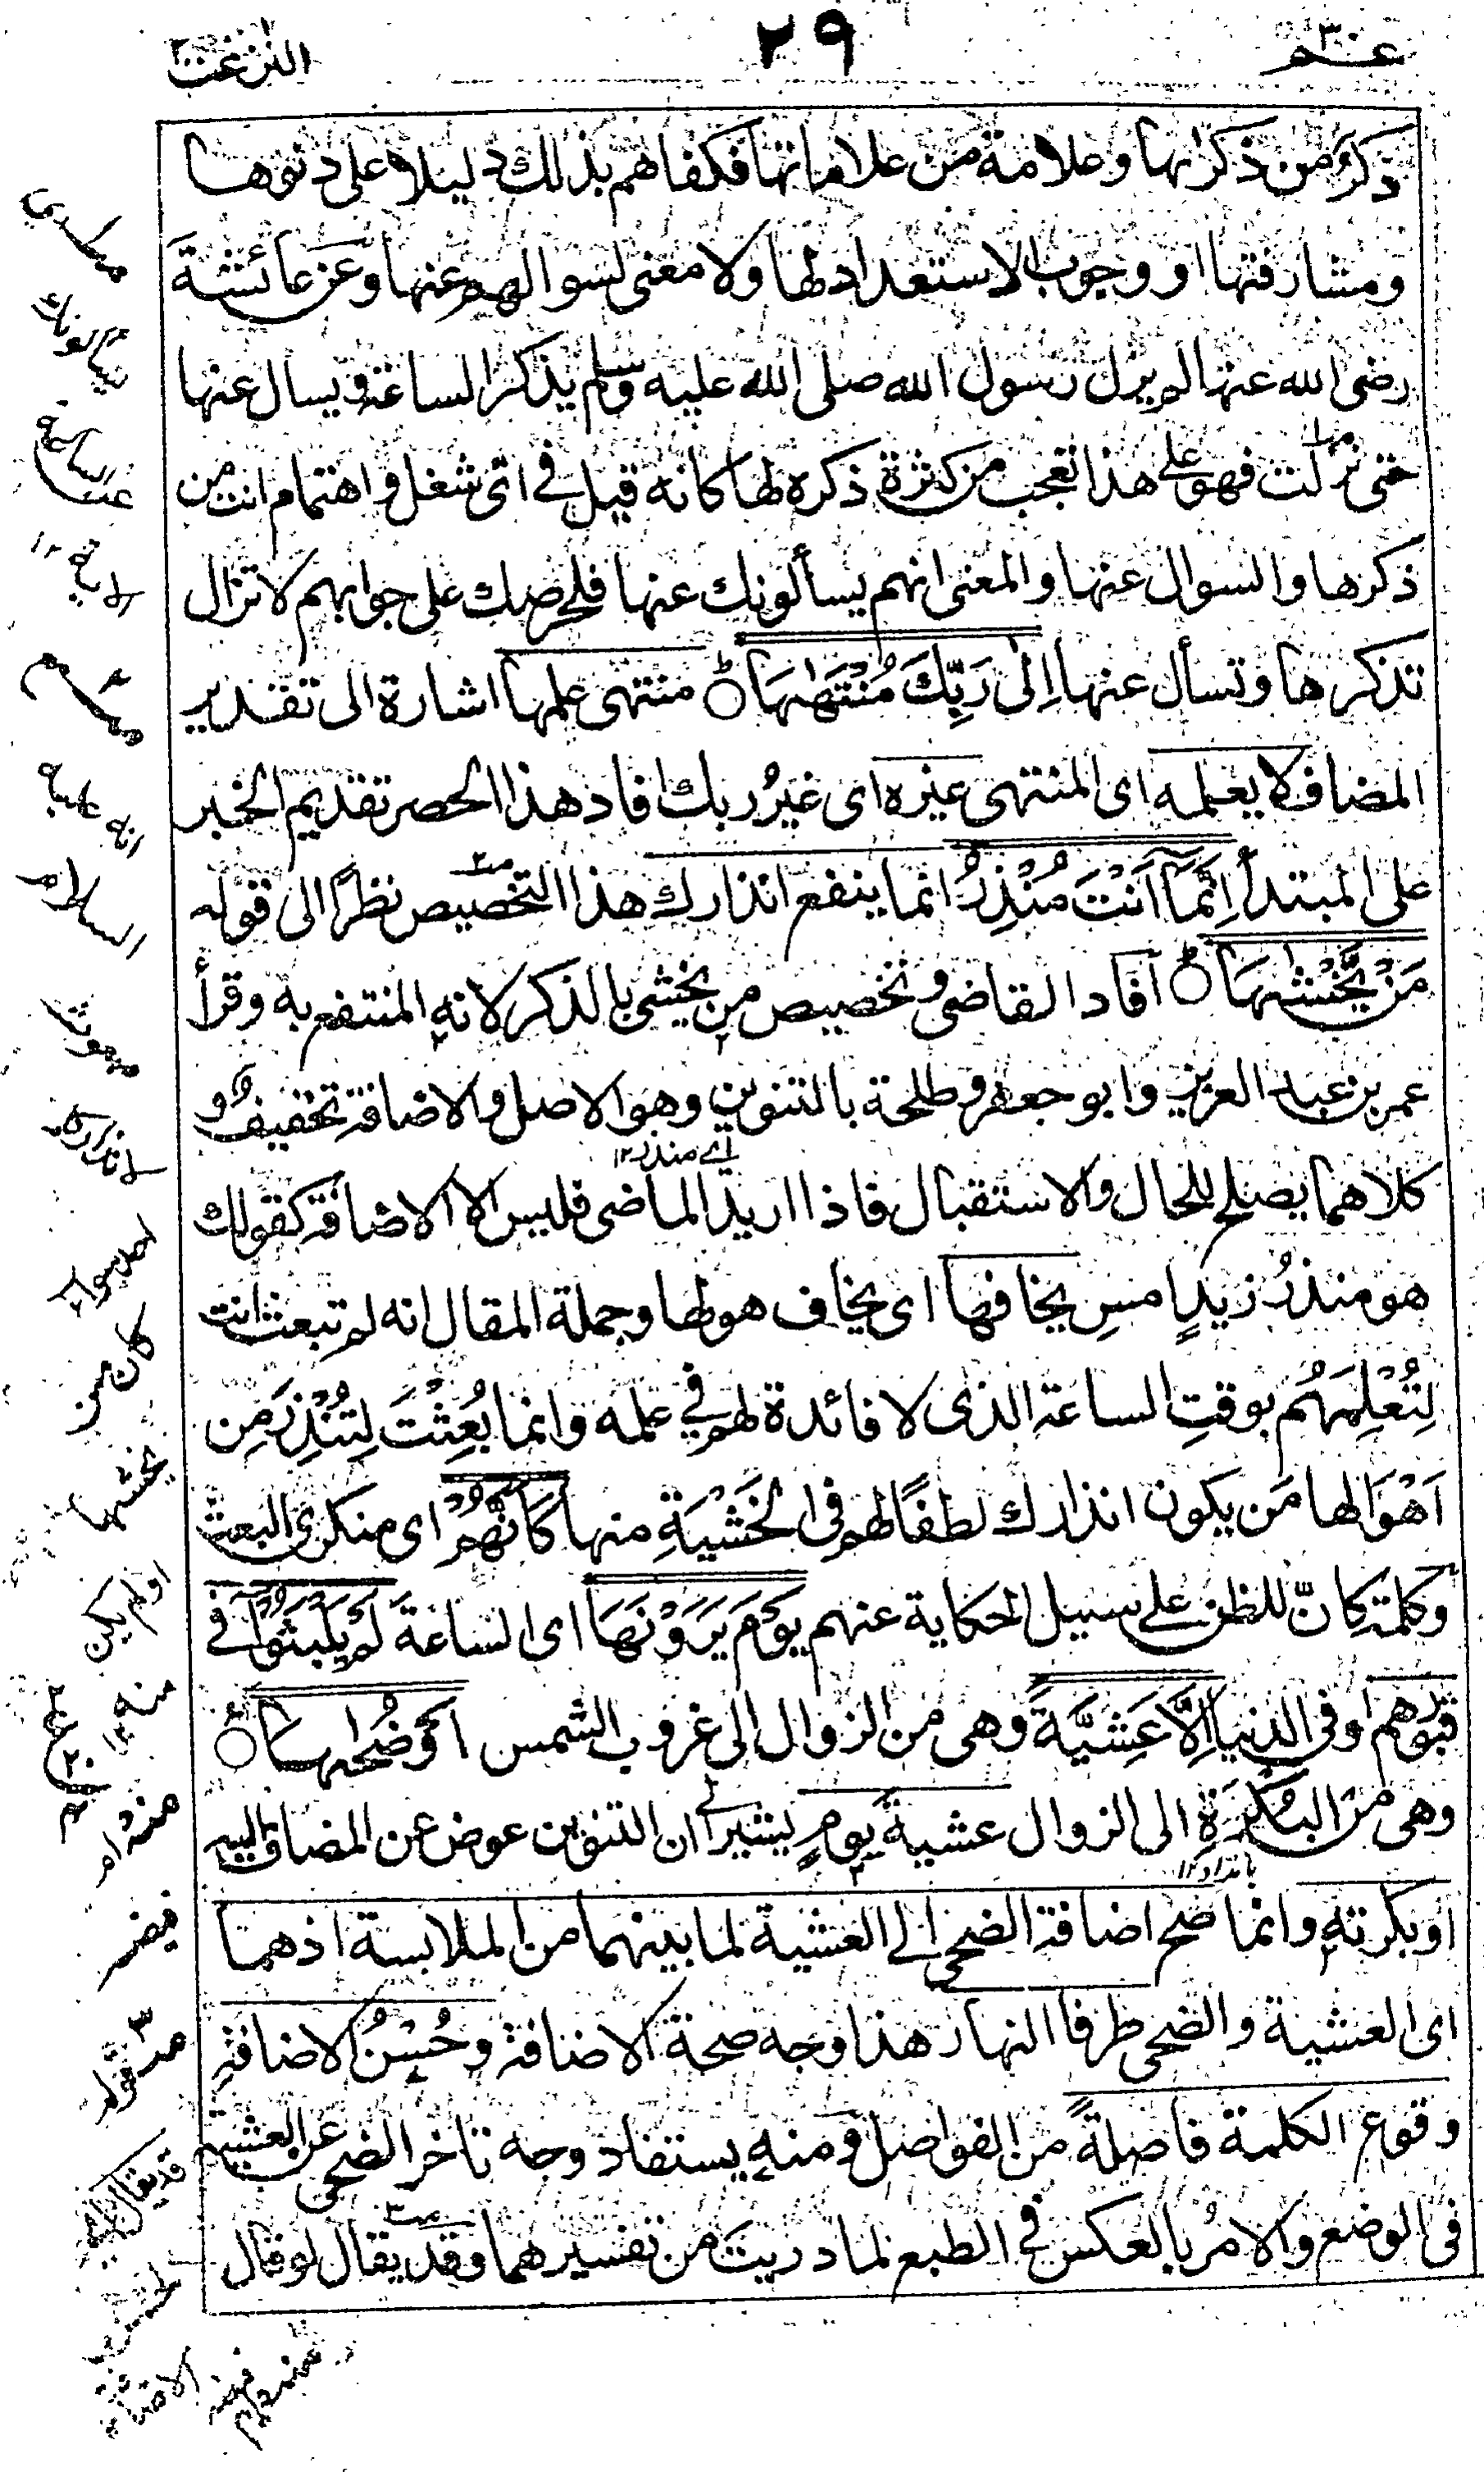 عم ٣٠
٢٩
النزعت
ذكر من ذكراها وعلامة من علاماتها فكفاهم بذلك دليلا على دنوها
ومشارفتها او وجوب الاستعداد لها ولا معنى لسوالهم عنها وعن عائشة
رضى الله عنها لم يزل رسول الله صلى الله عليه وسلم يذكر الساعة ويسال عنها
حتى نزلت فهو على هذا تعجب من كثرة ذكره لها كانه قيل فى اى شغل واهتمام انت من
ذكرها والسوال عنها والمعنى انهم يسألونك عنها فلحرصك على جوابهم لا تزال
تذكرها وتسأل عنها اِلٰى رَبِّكَ مُنْتَهٰىهَا منتهى علمها اشارة الى تقدير
المضاف لا يعلمه اى المنتهى غيره اى غيرُ ربك افاد هذا الحصر تقديم الخبر
على المبتدأ اِنَّمَآ اَنْتَ مُنْذِرُ انما ينفع انذارك هذا التخصيص نظرًا الى قوله
مَنْ يَّخْشٰىهَا افاد القاضى وتخصيص من يخشى بالذكر لانه المنتفع به وقرأ
عمر بن عبد العزيز وابو جعفر وطلحة بالتنوين وهو الاصل والاضافة تخفيف و
اے منذر ١٢
كلاهما يصلح للحال والاستقبال فاذا اريد الماضى فليس الا الاضافة كقولك
هو منذرُ زيدٍ امسِ يخافها اى يخاف هولها وجملة المقال انه لم تبعث انت
لِتُعْلِمَهُم بوقتِ الساعة الذى لا فائدة لهم فى علمه وانما بُعِثْتَ لِتُنْذِرَ مِن
اَهْوَالها مَن يكون انذارك لطفًا لهم فى الخَشْيَةِ منها كَاَنَّهُمْ اى منكرى البعث
وكلمة كانّ للظن على سبيل الحكاية عنهم يَوْمَ يَرَوْنَهَا اى الساعةَ لَمْ يَلْبَثُوْٓا فى
قبُوْرهم او فى الدنيا اِلَّا عَشِيَّةً وهى من الزوال الى غروب الشمس اَوْ ضُحٰىهَا
وهى من البُكْرَةِ الى الزوال عشية يومٍ يشير الى ان التنوين عوض عن المضاف اليه
بامداد ١٢
او بكرته وانما صح اضافة الضحى الى العشية لما بينهما من الملابسة اذ هما
اى العشية والضحى طرفا النهار هذا وجه صحة الاضافة وحُسْنُ الاضافة
وقوع الكلمة فاصلةً من الفواصل ومنه يستفاد وجه تاخر الضحى عن العشية
فى الوضع والامرُ بالعكس فى الطبع لما دريتَ من تفسيرهما وقد يقال لو قال
يسالونك
عن الساعة
الاية ١٢
انه عليه
السلام
مبعوث
لانذار كل
احد سواء
كان من
يخشها
او لم يكن
منه ١٢
قوله
قد يقال